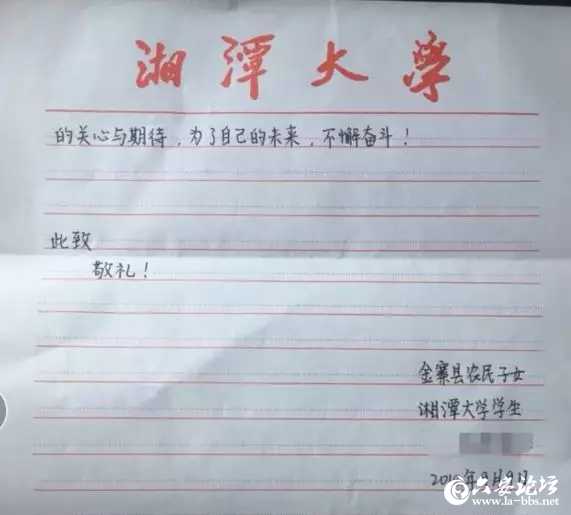 湘潭大学
的关心与期待，为了自己的未来，不懈奋斗！
此致
敬礼！
金寨县农民子女
湘潭大学学生
年9月9日
六安论坛
www.la-bbs.net